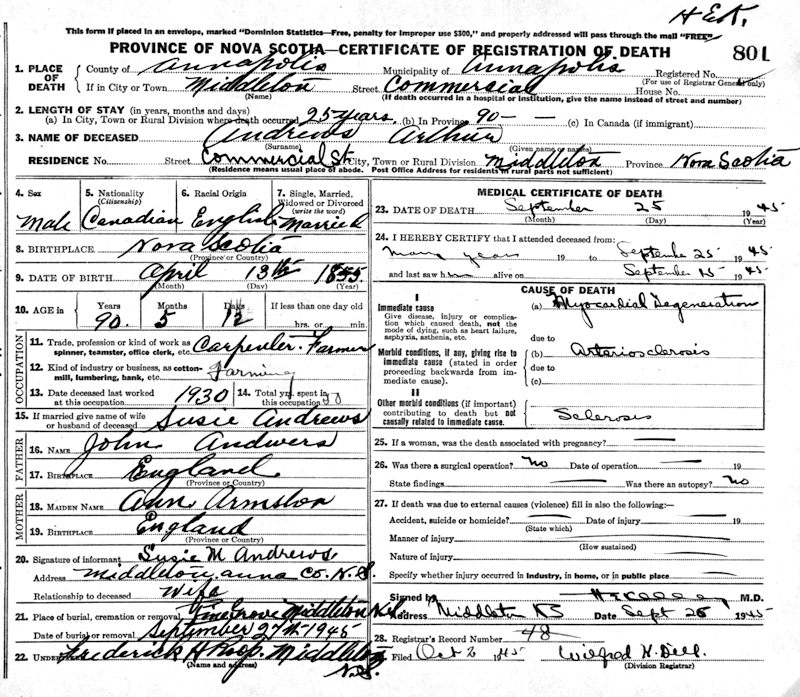 H.E.K.
This form if placed in an envelope, marked "Dominion Statistics—Free, penalty for improper use $300," and properly addressed will pass through the mail "FREE"
PROVINCE OF NOVA SCOTIA—CERTIFICATE OF REGISTRATION OF DEATH 801
1. PLACE OF DEATH County of Annapolis Municipality of Annapolis Registered No.
(For use of Registrar General only)
If in City or Town Middleton Street Commercial House No.
(Name) (If death occurred in a hospital or institution, give the name instead of street and number)
2. LENGTH OF STAY (in years, months and days)
(a) In City, Town or Rural Division where death occurred 25 years (b) In Province 90 — — (c) In Canada (if immigrant)
3. NAME OF DECEASED Andrews Arthur
(Surname) (Given name or names)
RESIDENCE No. Street Commercial St. City, Town or Rural Division Middleton Province Nova Scotia
(Residence means usual place of abode. Post Office Address for residents in rural parts not sufficient)
4. Sex Male
5. Nationality (Citizenship) Canadian
6. Racial Origin English
7. Single, Married, Widowed or Divorced (write the word) Married
8. BIRTHPLACE Nova Scotia
(Province or Country)
9. DATE OF BIRTH April 13th 1855
(Month) (Day) (Year)
10. AGE in Years 90 Months 5 Days 12 If less than one day old
hrs. or min.
OCCUPATION
11. Trade, profession or kind of work as spinner, teamster, office clerk, etc. Carpenter. Farmer
12. Kind of industry or business, as cotton-mill, lumbering, bank, etc. Farming
13. Date deceased last worked at this occupation 1930 14. Total yrs. spent in this occupation 30
15. If married give name of wife or husband of deceased Susie Andrews
FATHER
16. NAME John Andwers
17. BIRTHPLACE England
(Province or Country)
MOTHER
18. MAIDEN NAME Ann Armston
19. BIRTHPLACE England
(Province or Country)
20. Signature of informant Susie M Andrews
Address Middleton, Anna Co. N.S.
Relationship to deceased Wife
21. Place of burial, cremation or removal Pine Grove Middleton N.S.
Date of burial or removal September 27th 1945
22. UNDERTAKER Frederick H Roop, Middleton N.S.
(Name and address)
MEDICAL CERTIFICATE OF DEATH
23. DATE OF DEATH September 25 1945
(Month) (Day) (Year)
24. I HEREBY CERTIFY that I attended deceased from:
many years 19 to September 25 1945
and last saw him alive on September 15 1945
CAUSE OF DEATH
I
Immediate cause
Give disease, injury or complication which caused death, not the mode of dying, such as heart failure, asphyxia, asthenia, etc.
(a) Myocardial Degeneration
due to
Morbid conditions, if any, giving rise to immediate cause (stated in order proceeding backwards from immediate cause).
(b) Arteriosclerosis
due to
(c)
II
Other morbid conditions (if important) contributing to death but not causally related to immediate cause.
Sclerosis
25. If a woman, was the death associated with pregnancy? —
26. Was there a surgical operation? No Date of operation — 19
State findings — Was there an autopsy? No
27. If death was due to external causes (violence) fill in also the following:—
Accident, suicide or homicide? — Date of injury — 19
(State which)
Manner of injury —
(How sustained)
Nature of injury —
Specify whether injury occurred in industry, in home, or in public place —
Signed by M.D.
Address Middleton NS Date Sept 26 1945
28. Registrar's Record Number 48
Filed Oct 2 1945 Wilfred H. Dell.
(Division Registrar)